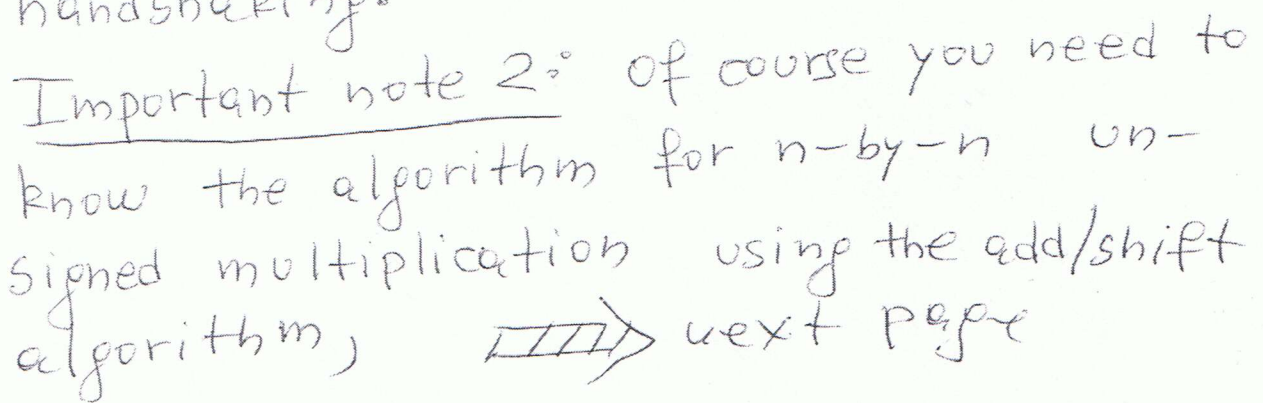 handshaking.
Important note 2: of course you need to
know the algorithm for n-by-n un-
signed multiplication using the add/shift
algorithm, next page